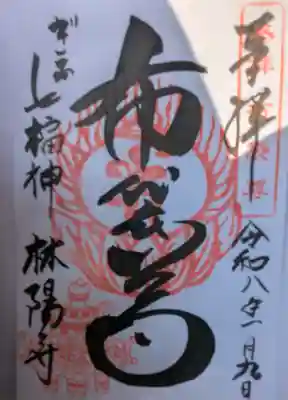 奉拝
令和八年一月九日
布袋尊
ぎふ七福神 林陽寺